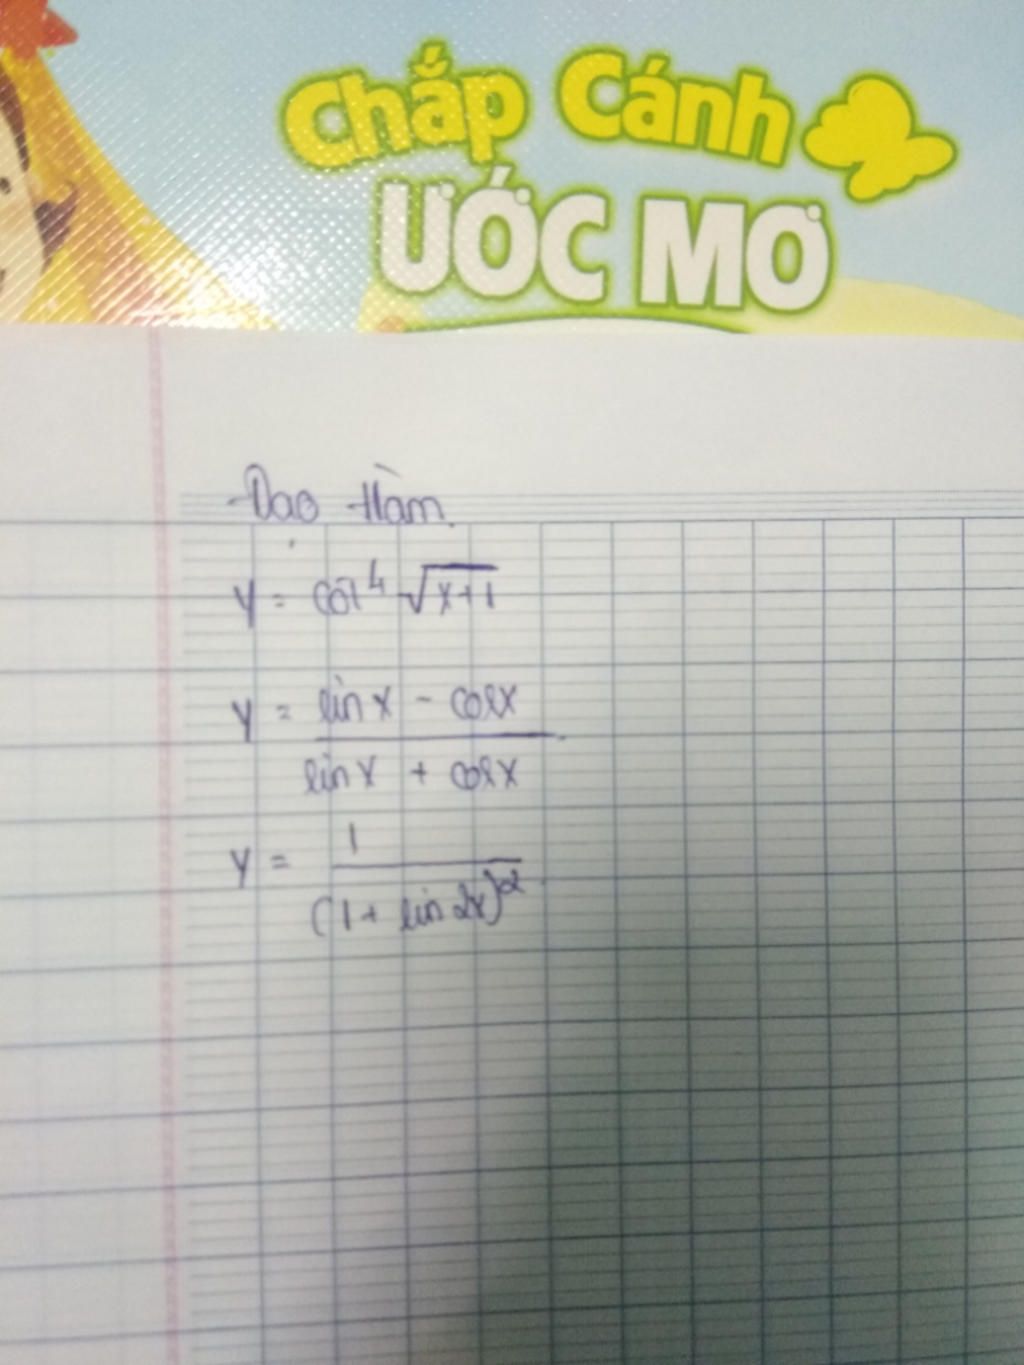 Chắp Cánh
ƯỚC MƠ
Đạo Hàm
y = cot⁴ √x+1
y = sin x - cosx
sin x + cosx
y = 1
(1 + sin 2x)²